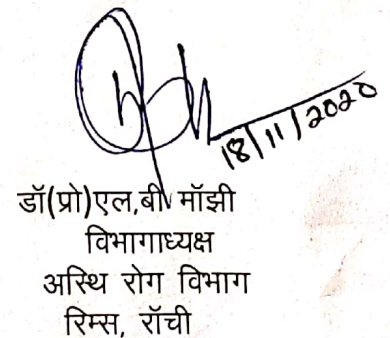 18/11/2020
डॉ(प्रो)एल,बी मॉझी
विभागाध्यक्ष
अस्थि रोग विभाग
रिम्स, रॉची